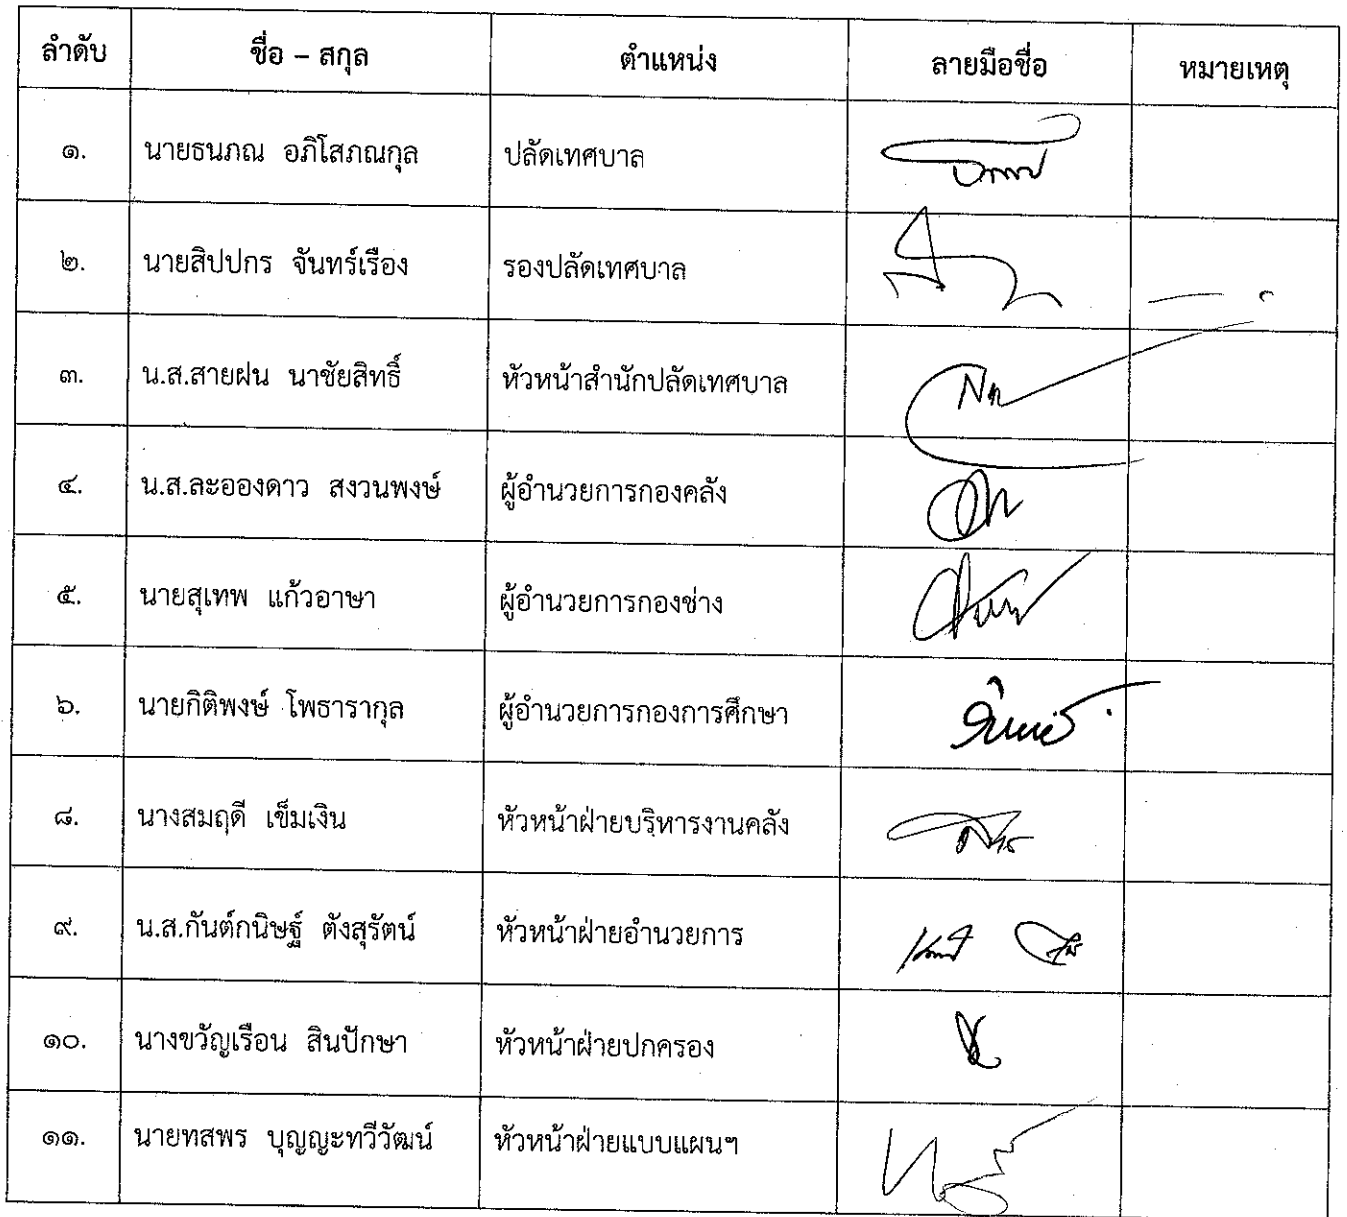 ลำดับ ชื่อ – สกุล ตำแหน่ง ลายมือชื่อ หมายเหตุ
๑. นายธนภณ อภิโสภณกุล ปลัดเทศบาล
๒. นายสิปปกร จันทร์เรือง รองปลัดเทศบาล
๓. น.ส.สายฝน นาชัยสิทธิ์ หัวหน้าสำนักปลัดเทศบาล
๔. น.ส.ละอองดาว สงวนพงษ์ ผู้อำนวยการกองคลัง
๕. นายสุเทพ แก้วอาษา ผู้อำนวยการกองช่าง
๖. นายกิติพงษ์ โพธารากุล ผู้อำนวยการกองการศึกษา
๘. นางสมฤดี เข็มเงิน หัวหน้าฝ่ายบริหารงานคลัง
๙. น.ส.กันต์กนิษฐ์ ตังสุรัตน์ หัวหน้าฝ่ายอำนวยการ
๑๐. นางขวัญเรือน สินปักษา หัวหน้าฝ่ายปกครอง
๑๑. นายทสพร บุญญะทวีวัฒน์ หัวหน้าฝ่ายแบบแผนฯ